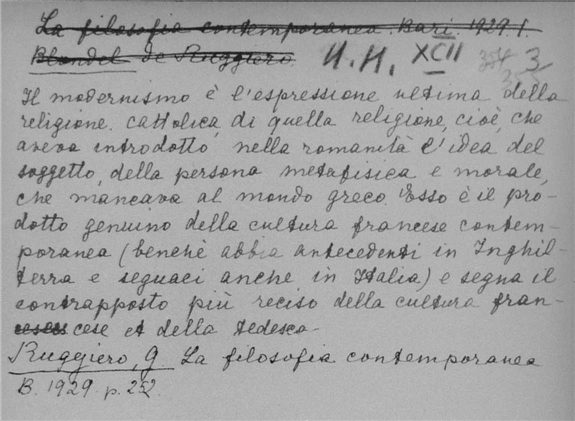 La filosofia contemporanea. Bari. 1929. I.
Blondel de Ruggiero. И. Н. XCII 3
Il modernismo è l'espressione ultima della
religione cattolica, di quella religione, cioè, che
aveva introdotto nella romanità l'idea del
soggetto, della persona metafisica e morale,
che mancava al mondo greco. Esso è il pro-
dotto genuino della cultura francese contem-
poranea (benchè abbia antecedenti in Inghil-
terra e seguaci anche in Italia) e segna il
contrapposto più reciso della cultura fran-
cese et della tedesca.
Ruggiero, G. La filosofia contemporanea
B. 1929. p. 252.